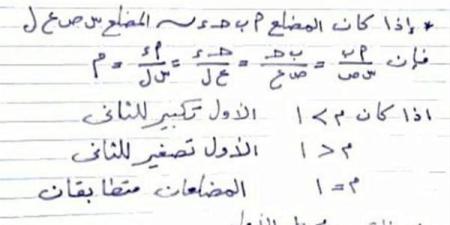 * إذا كان المضلع م ب حـ ء ~ المضلع س ص ع ل
فإن م ب / س ص = ب حـ / ص ع = حـ ء / ع ل = م ء / س ل = م
اذا كان م > ١ الأول تكبير للثانى
م < ١ الأول تصغير للثانى
م = ١ المضلعان متطابقان